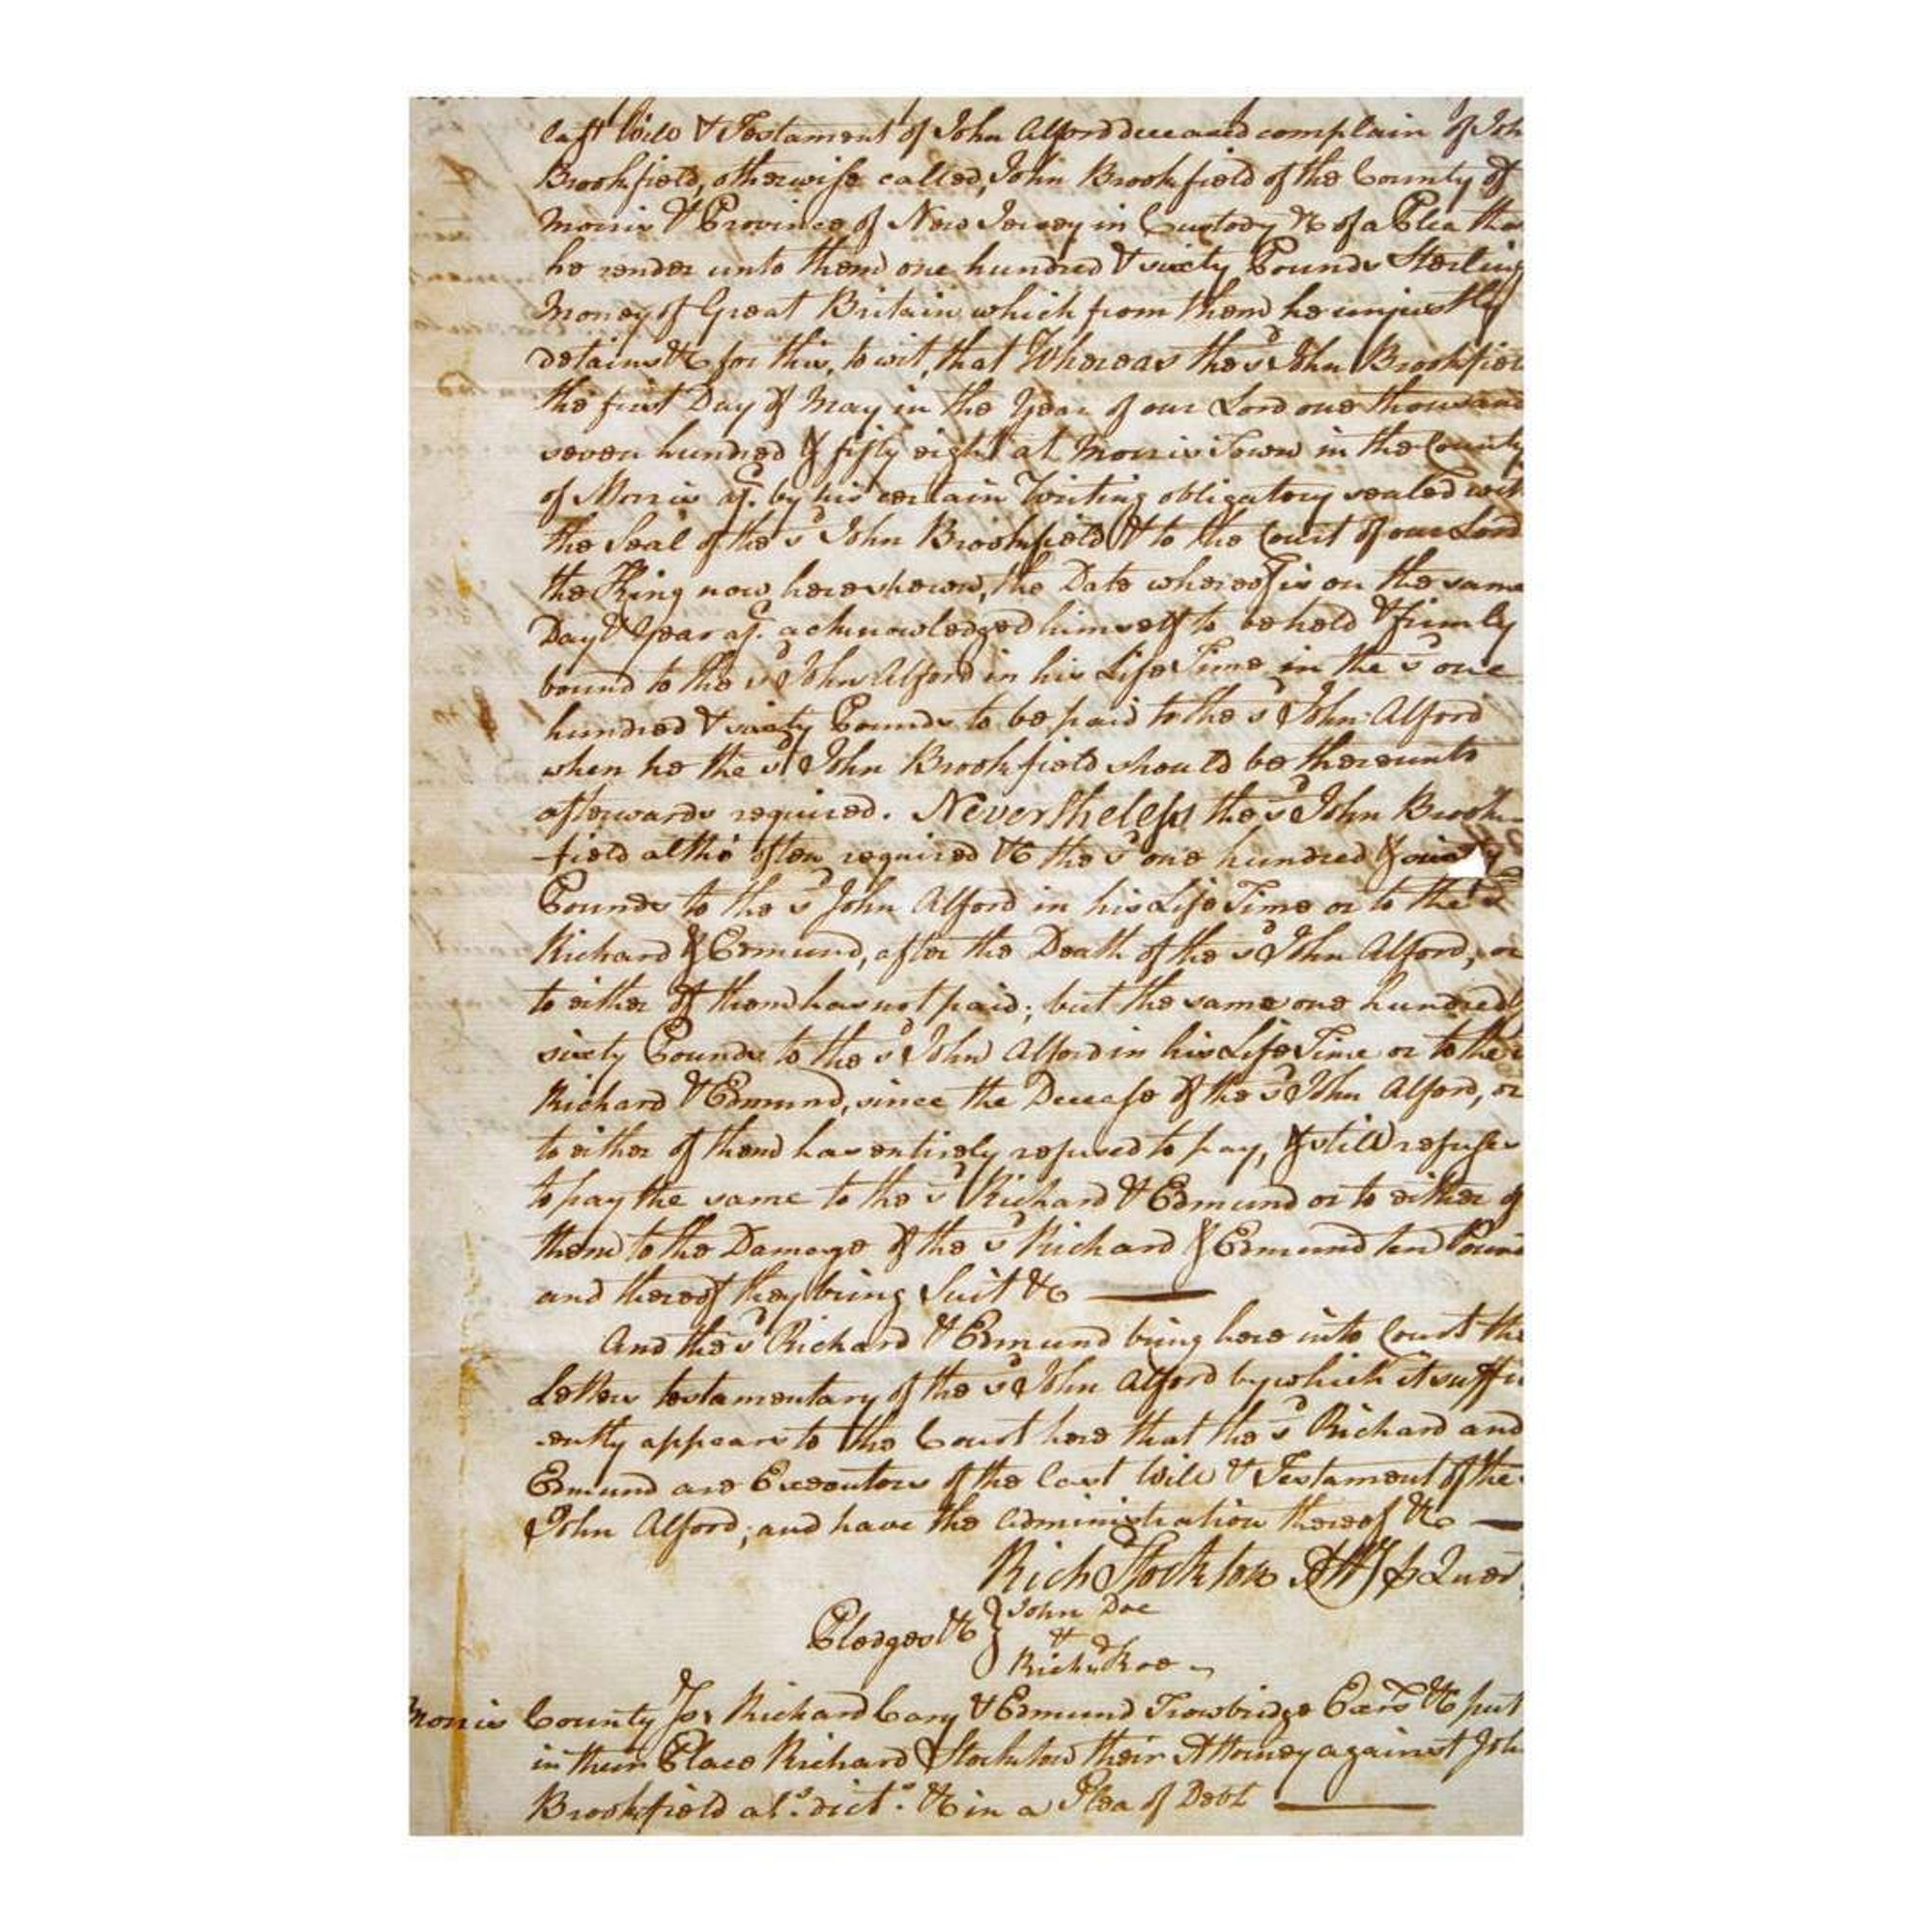 last Will & Testament of John Alford deceased complain of Joh
Brookfield, otherwise called, John Brookfield of the County of
Morris & Province of New Jersey in Custody &c of a Plea tha
he render unto them one hundred & sixty Pounds Sterling
Money of Great Britain which from them he unjustly
detains &c for this, to wit, that Whereas the sd John Brookfiel
the first Day of May in the Year of our Lord one thousand
seven hundred & fifty eight at Morris Town in the County
of Morris afd. by his certain Writing obligatory sealed with
the Seal of the sd John Brookfield & to the Court of our Lord
the King now here shewn, the Date whereof is on the same
Day & Year afd. acknowledged himself to be held & firmly
bound to the sd John Alford in his Life Time in the sd one
hundred & sixty Pounds to be paid to the sd John Alford
when he the sd John Brookfield should be thereunto
afterwards required. Nevertheless the sd John Brook-
field altho' often required &c the sd one hundred & sixty
Pounds to the sd John Alford in his Life Time or to the sd
Richard & Edmund, after the Death of the sd John Alford, or
to either of them has not paid; but the same one hundred &
sixty Pounds to the sd John Alford in his Life Time or to the s
Richard & Edmund, since the Decease of the sd John Alford, or
to either of them has entirely refused to pay, & still refuses
to pay the same to the sd Richard & Edmund or to either of
them to the Damage of the sd Richard & Edmund ten Pound
and thereof they bring Suit &c
And the sd Richard & Edmund bring here into Court the
Letters testamentary of the sd John Alford by which it suffi
-ently appears to the Court here that the sd Richard and
Edmund are Executors of the last Will & Testament of the
John Alford; and have the administration thereof &c
Rich Stockton Atty p Quer
Pledges &c } John Doe
&
Richd Roe
Morris County Ss Richard Cary & Edmund Trowbridge Exrs &c put
in their Place Richard Stockton their Attorney against Joh
Brookfield als. dict. &c in a Plea of Debt